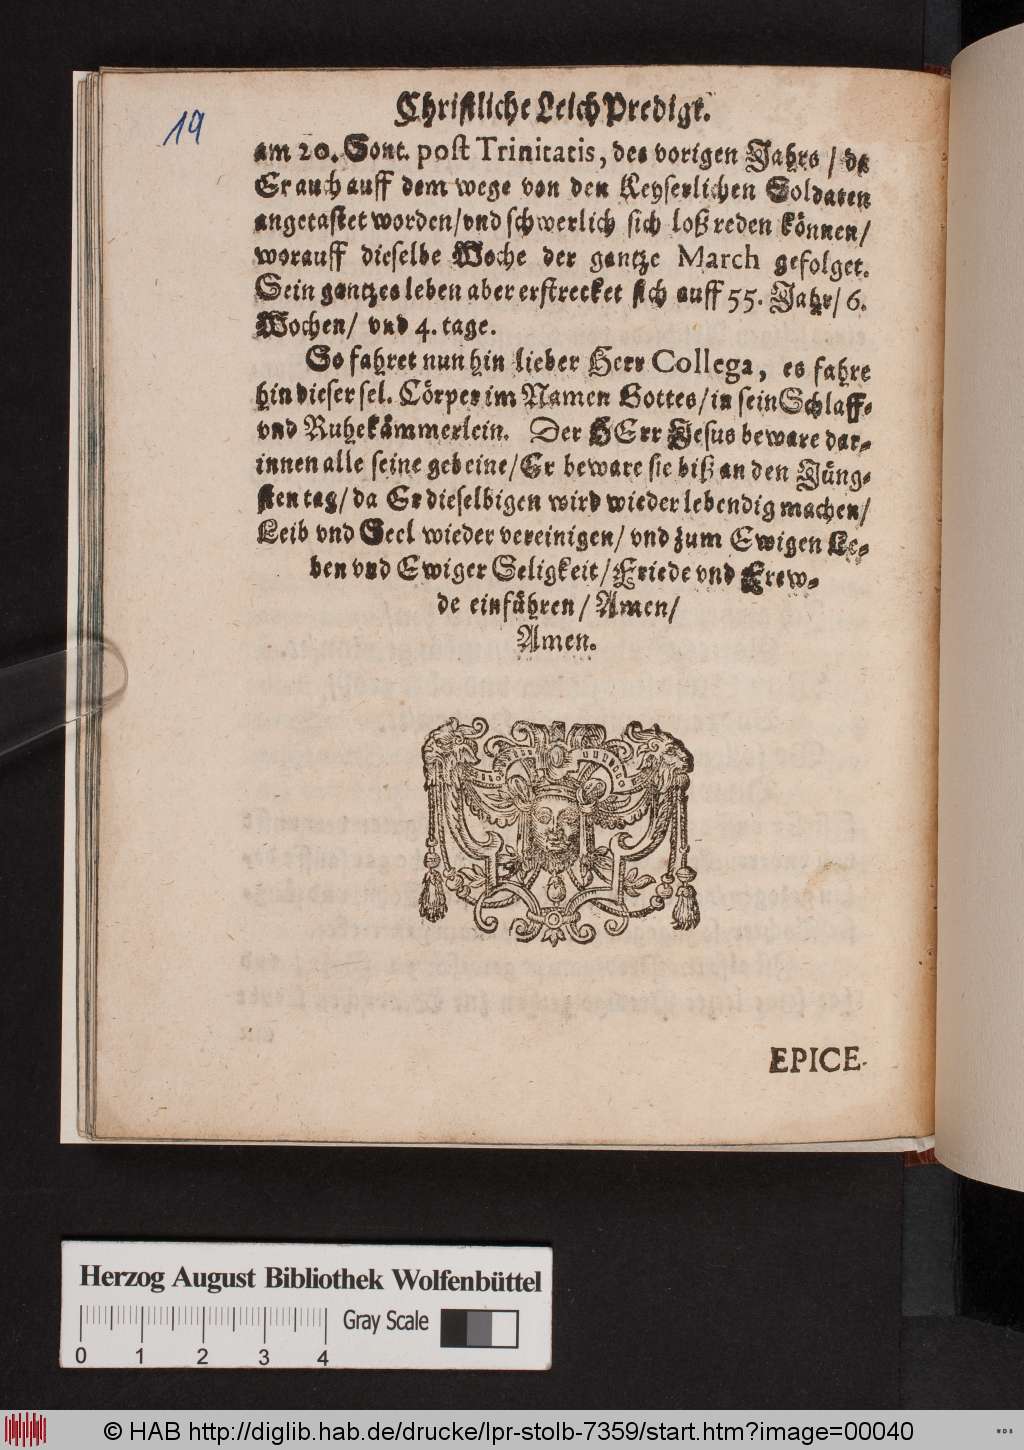 19
Christliche LeichPredigt.
am 20. Sont. post Trinitatis, des vorigen Jahrs / da
Er auch auff dem wege von den Keyserlichen Soldaten
angetastet worden / vnd schwerlich sich loß reden können /
worauff dieselbe Woche der gantze March gefolget.
Sein gantzes leben aber erstrecket sich auff 55. Jahr / 6.
Wochen / vnd 4. tage.
So fahret nun hin lieber Herr Collega, es fahre
hin dieser sel. Cörper im Namen Gottes / in sein Schlaff-
vnd Ruhekämmerlein. Der HErr Jesus beware dar-
innen alle seine gebeine / Er beware sie biß an den Jüng-
sten tag / da Er dieselbigen wird wieder lebendig machen /
Leib vnd Seel wieder vereinigen / vnd zum Ewigen Le-
ben vnd Ewiger Seligkeit / Friede vnd Frew-
de einführen / Amen /
Amen.
EPICE-
Herzog August Bibliothek Wolfenbüttel
Gray Scale
0 1 2 3 4
© HAB http://diglib.hab.de/drucke/lpr-stolb-7359/start.htm?image=00040